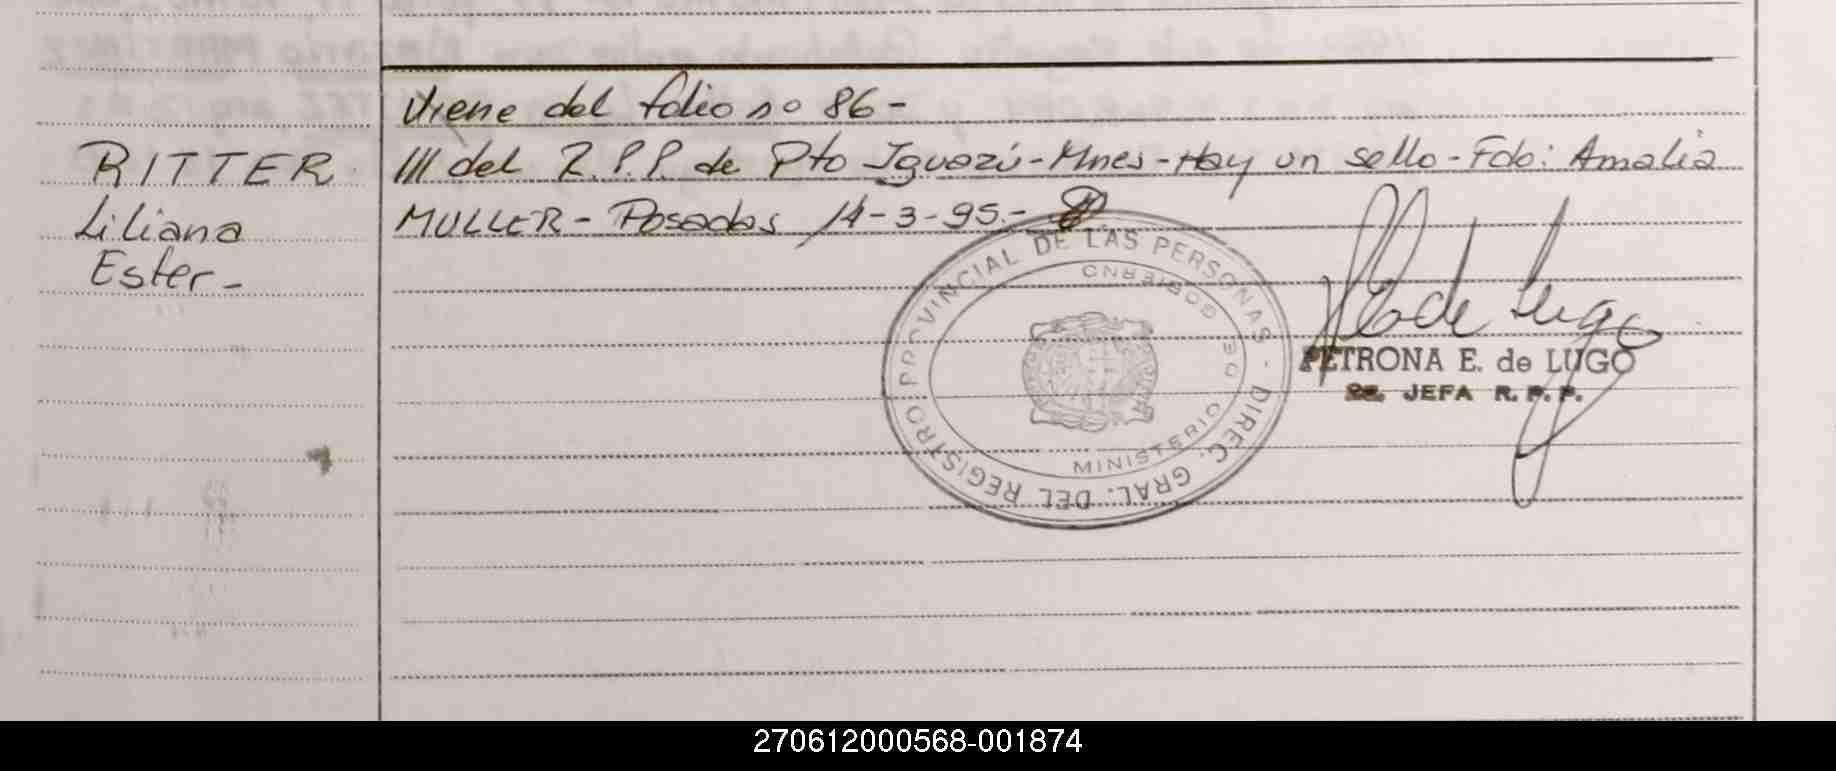 Viene del folio nº 86-
RITTER
Liliana
Ester-
III del R.P.P. de Pto Iguazú-Mnes-Hay un sello-Fdo: Amalia
MULLER- Posadas 14-3-95.-
DIREC. GRAL. DEL REGISTRO PROVINCIAL DE LAS PERSONAS -
MINISTERIO DE GOBIERNO
P E de Lugo
PETRONA E. de LUGO
JEFA R. P. P.
270612000568-001874